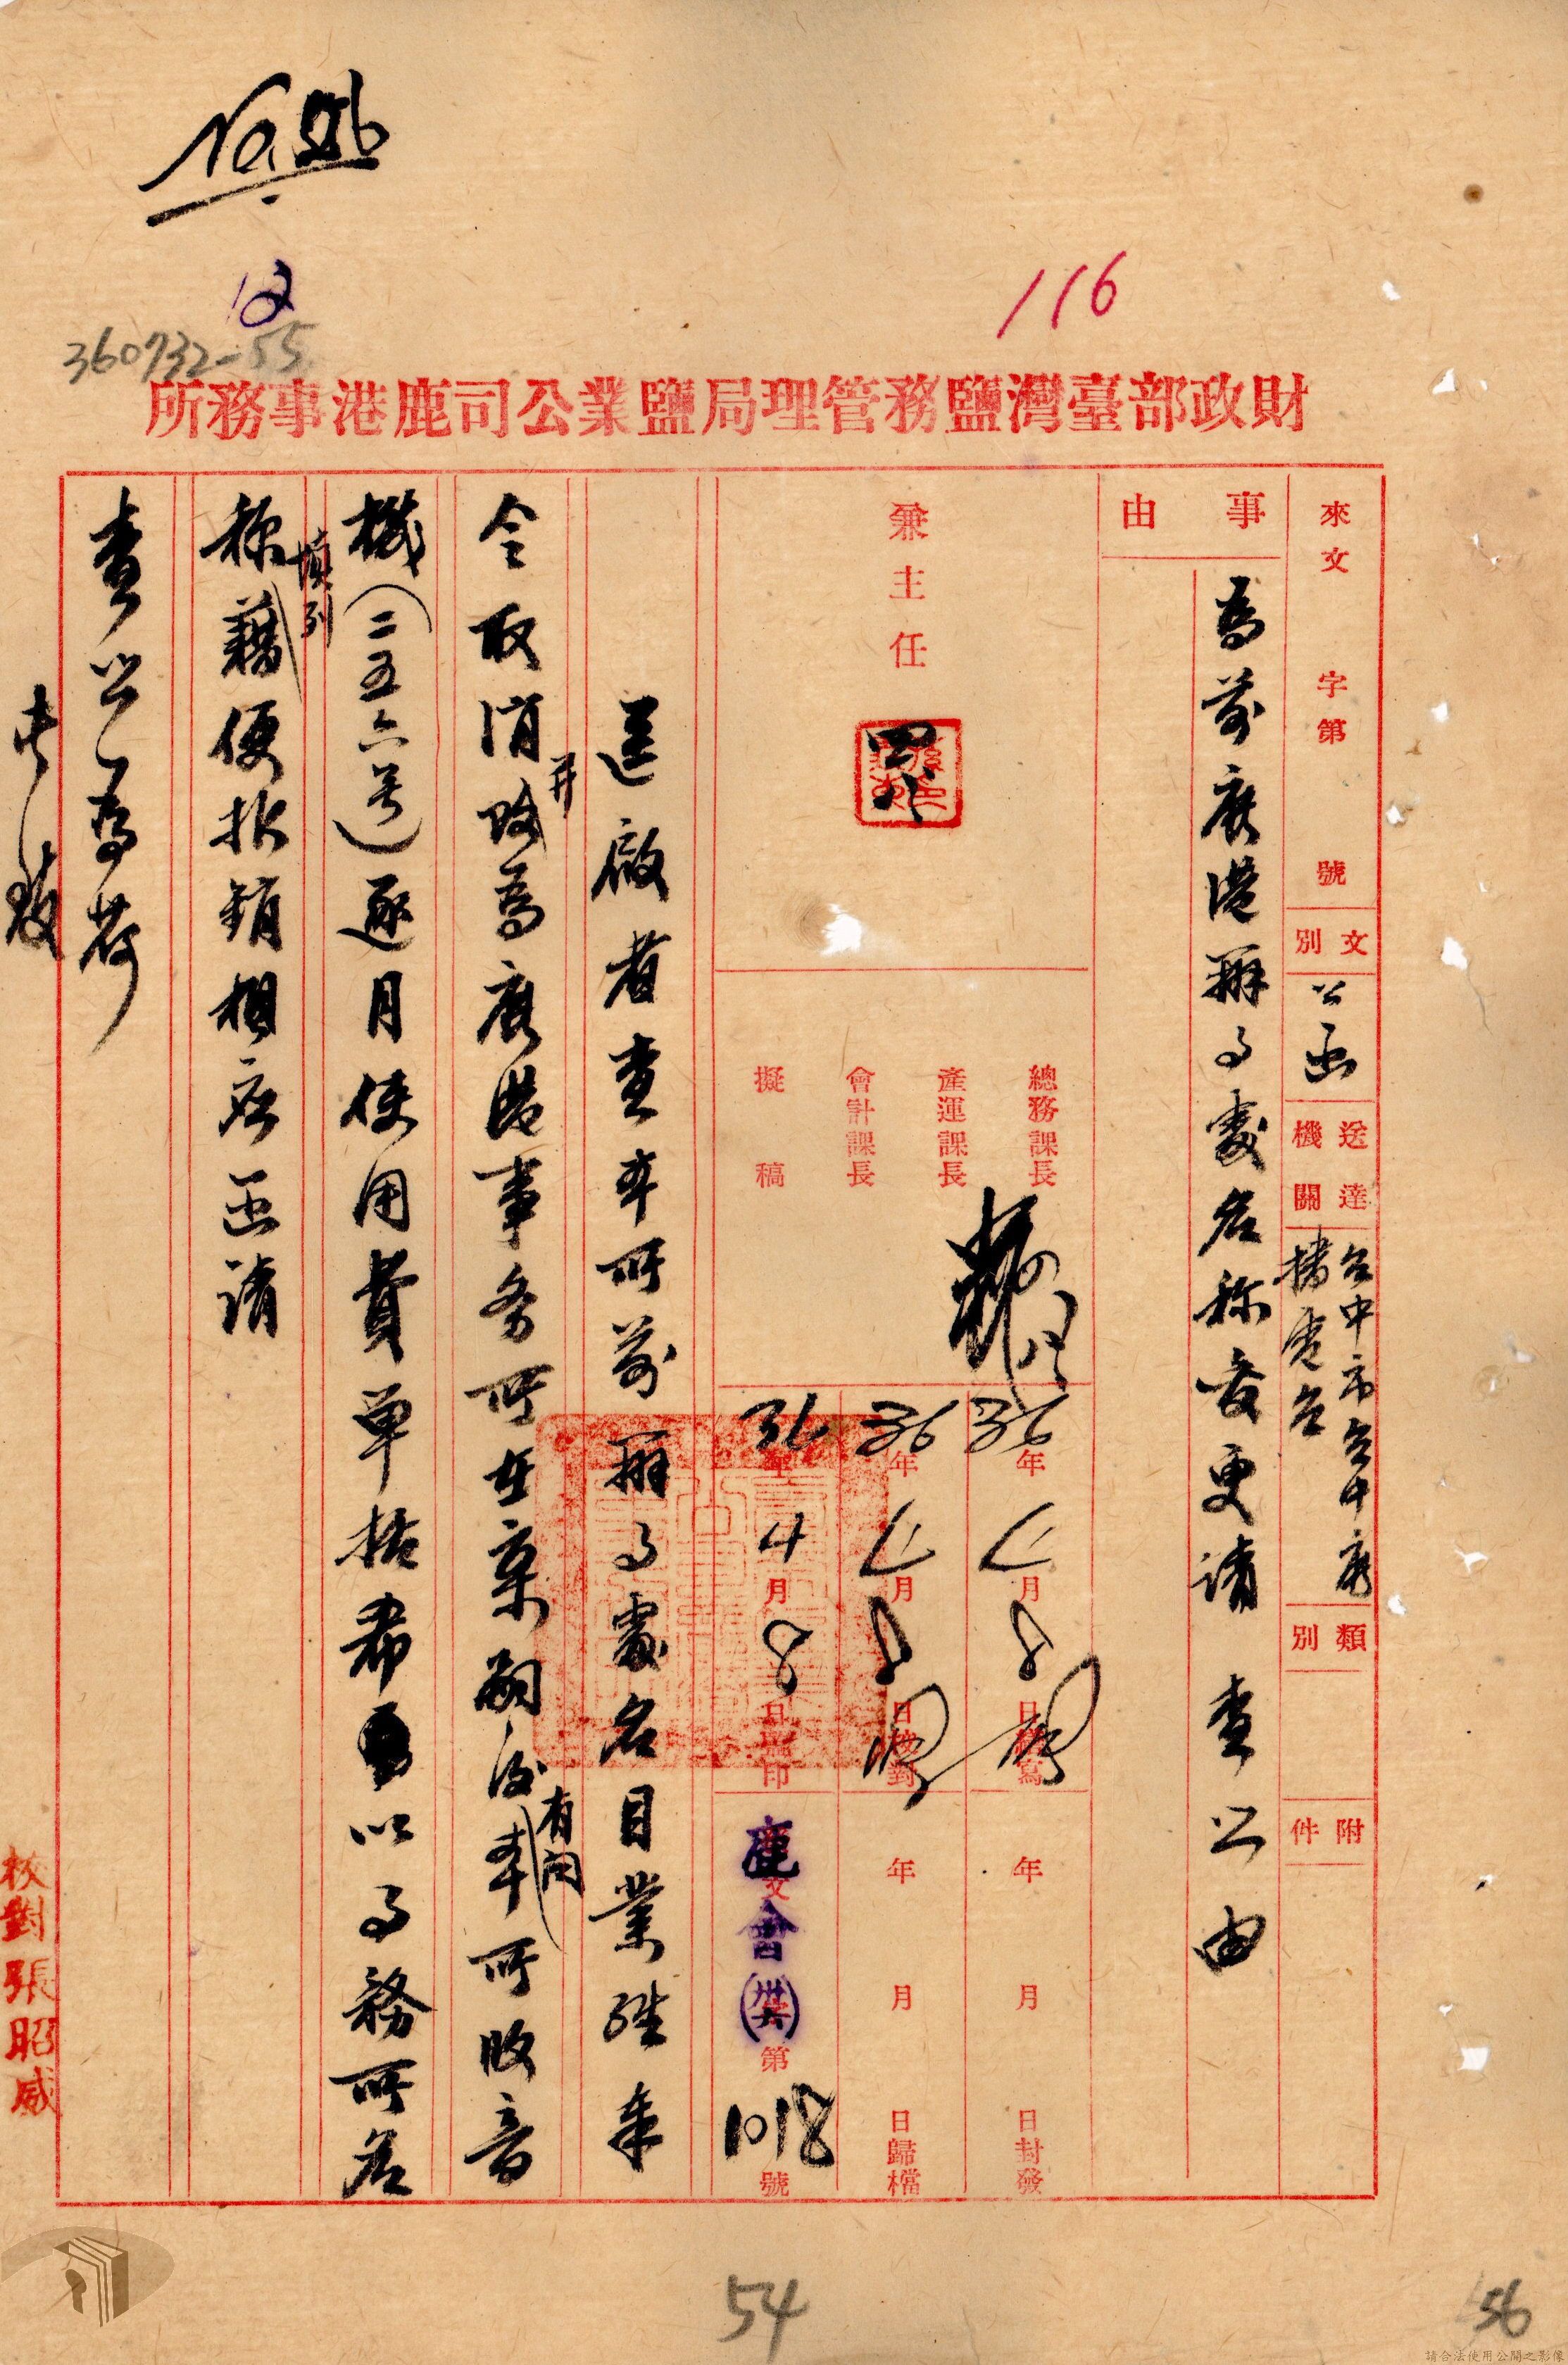 No. 56
12
116
360732-55
財政部臺灣鹽務管理局鹽業公司鹿港事務所
來文 字第 號
文別 公函
送達機關 台中市台中廣播電台
類別
附件
事由
為前鹿港辦事處名稱變更請 查照由
兼主任
總務課長
產運課長
會計課長
擬稿
36年4月8日繕寫
36年4月8日校對
36年4月8日蓋印
年 月 日封發
年 月 日歸檔
鹿會(卅六)文字第1018號
逕啟者查本所前辦事處名目業經奉
令取消并改為鹿港事務所在案嗣後有關本所收音
機(二五六號)逐月使用費單據希以事務所名
稱填列藉便報銷相應函請
查照為荷
此致
校對張昭威
54
56
請合法使用公開之影像